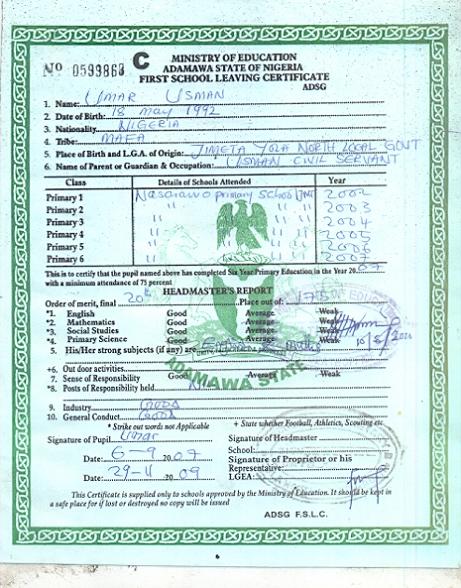 No 0599868 C MINISTRY OF EDUCATION
ADAMAWA STATE OF NIGERIA
FIRST SCHOOL LEAVING CERTIFICATE
ADSG
1. Name: UMAR USMAN
2. Date of Birth: 18 may 1992
3. Nationality: NIGERIA
4. Tribe: MAFA
5. Place of Birth and L.G.A. of Origin: JIMETA YOLA NORTH LOCAL GOVT
6. Name of Parent or Guardian & Occupation: USMAN CIVIL SERVANT
Class Details of Schools Attended Year
Primary 1 Nasarawo primary school 2002
Primary 2 " " 2003
Primary 3 " " 2004
Primary 4 " " 2005
Primary 5 " " 2006
Primary 6 " " 2007
This is to certify that the pupil named above has completed Six Year Primary Education, in the Year 2007
with a minimum attendance of 75 percent
HEADMASTER'S REPORT
Order of merit, final 20th Place out of:
*1. English Good Average Weak
*2. Mathematics Good Average Weak
*3. Social Studies Good Average Weak
*4. Primary Science Good Average Weak
5. His/Her strong subjects (if any) are
ADAMAWA STATE
+6. Out door activities
7. Sense of Responsibility Good Average Weak
*8. Posts of Responsibility held
9. Industry GOOD
10. General Conduct GOOD
* Strike out words not Applicable + State whether Football, Athletics, Scouting etc
Signature of Pupil Umar Signature of Headmaster
School:
Date: 6-9 2007 Signature of Proprietor or his
Representative:
Date: 29-11 2009 LGEA:
This Certificate is supplied only to schools approved by the Ministry of Education. It should be kept in
a safe place for if lost or destroyed no copy will be issued
ADSG F.S.L.C.
6